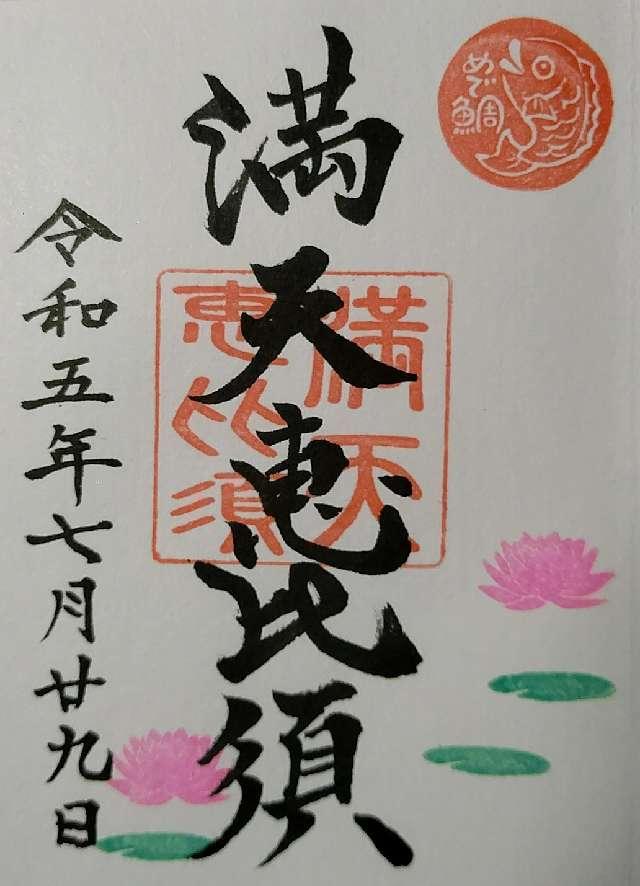 めで鯛
満天恵比須
満天
恵比須
令和五年七月廿九日